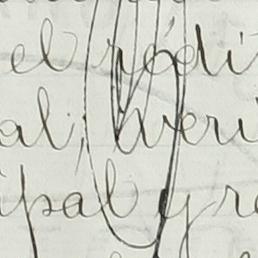 el rédi
al, veri
ipal y re